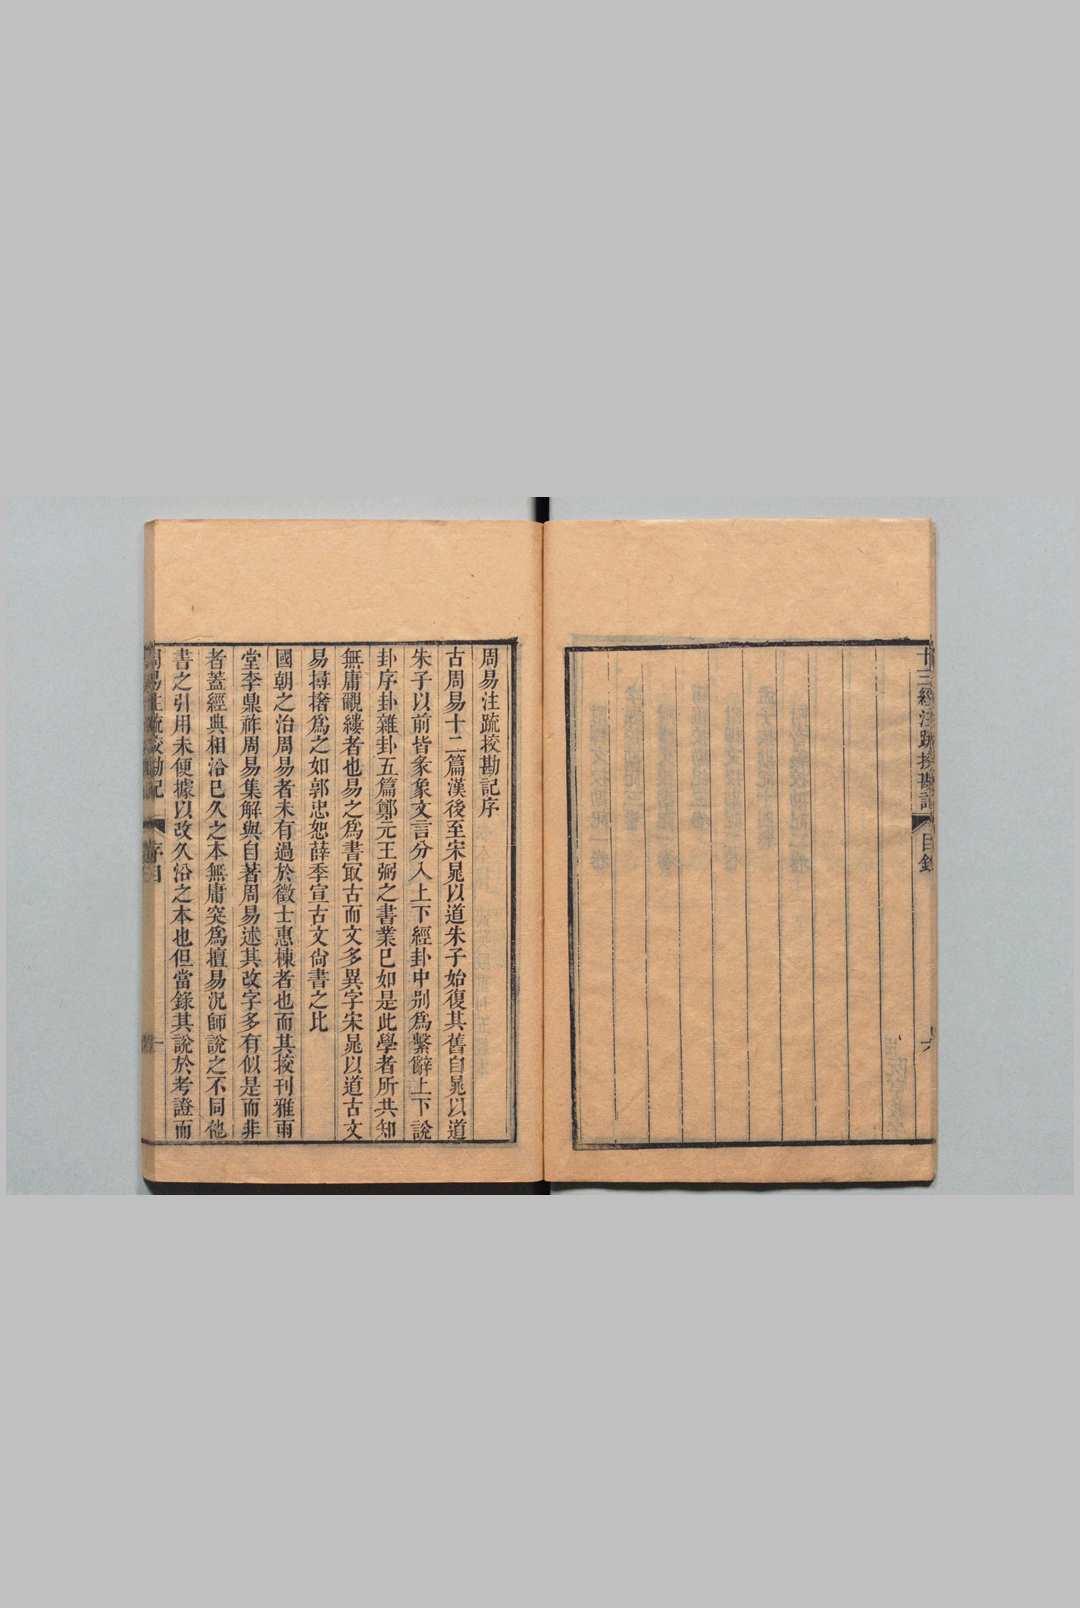 十三經注疏挍勘記 目錄
周易注疏挍勘記序
古周易十二篇漢後至宋晁以道朱子始復其舊自晁以道
朱子以前皆彖象文言分入上下經卦中别爲繫辭上下說
卦序卦雜卦五篇鄭元王弼之書業已如是此學者所共知
無庸覼縷者也易之爲書㝡古而文多異字宋晁以道古文
易撏撦爲之如郭忠恕薛季宣古文尙書之比
國朝之治周易者未有過於徵士惠棟者也而其挍刊雅雨
堂李鼎祚周易集解與自著周易述其改字多有似是而非
者蓋經典相沿已久之本無庸突爲擅易況師說之不同他
書之引用未便據以改久沿之本也但當錄其說於考證而
周易注疏挍勘記 序目 一